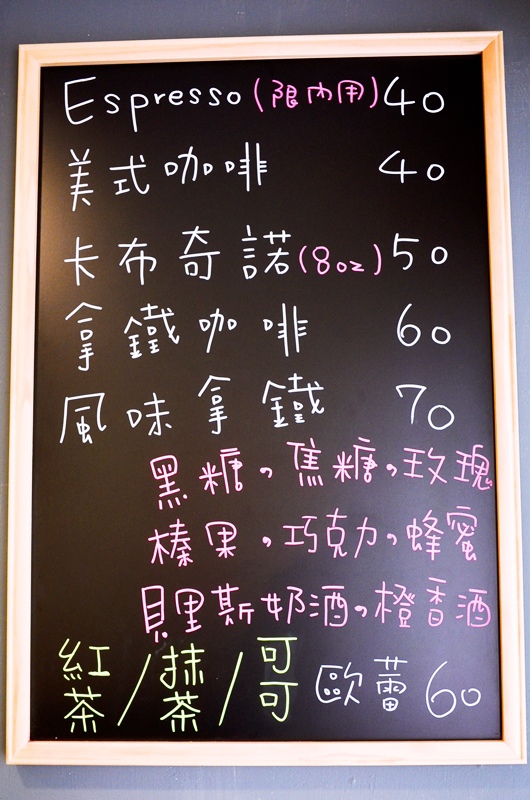 Espresso(限內用)40
美式咖啡 40
卡布奇諾(8oz)50
拿鐵咖啡 60
風味拿鐵 70
黑糖、焦糖、玫瑰
榛果、巧克力、蜂蜜
貝里斯奶酒、橙香酒
紅茶/抹茶/可可歐蕾 60